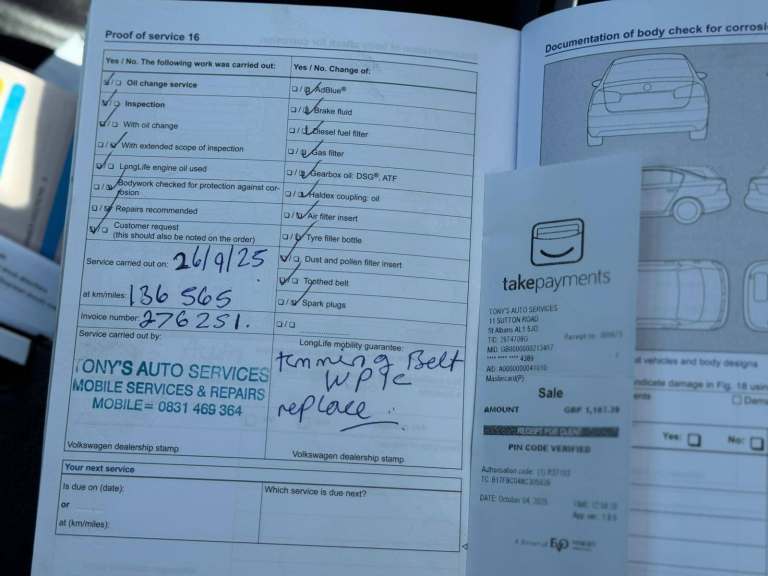 Proof of service 16
Yes / No. The following work was carried out:
Oil change service
Inspection
With oil change
With extended scope of inspection
LongLife engine oil used
Bodywork checked for protection against cor-
rosion
Repairs recommended
Customer request
(this should also be noted on the order)
Service carried out on: 26/9/25
at km/miles: 136 565
Invoice number: 276251.
Service carried out by:
TONY'S AUTO SERVICES
MOBILE SERVICES & REPAIRS
MOBILE= 0831 469 364
Volkswagen dealership stamp
Yes / No. Change of:
AdBlue®
Brake fluid
Diesel fuel filter
Gas filter
Gearbox oil: DSG®, ATF
Haldex coupling: oil
Air filter insert
Tyre filler bottle
Dust and pollen filter insert
Toothed belt
Spark plugs
LongLife mobility guarantee:
Timming Belt
replace
Volkswagen dealership stamp
Your next service
Is due on (date):
or
at (km/miles):
Which service is due next?
Documentation of body check for corrosi
takepayments
TONY'S AUTO SERVICES
11 SUTTON ROAD
St Albans AL1 5JQ
Mastercard(P)
Sale
AMOUNT GBP
PIN CODE VERIFIED
DATE: October 04, 2025
al vehicles and body designs
ndicate damage in Fig. 18 using
ents
Yes: No: